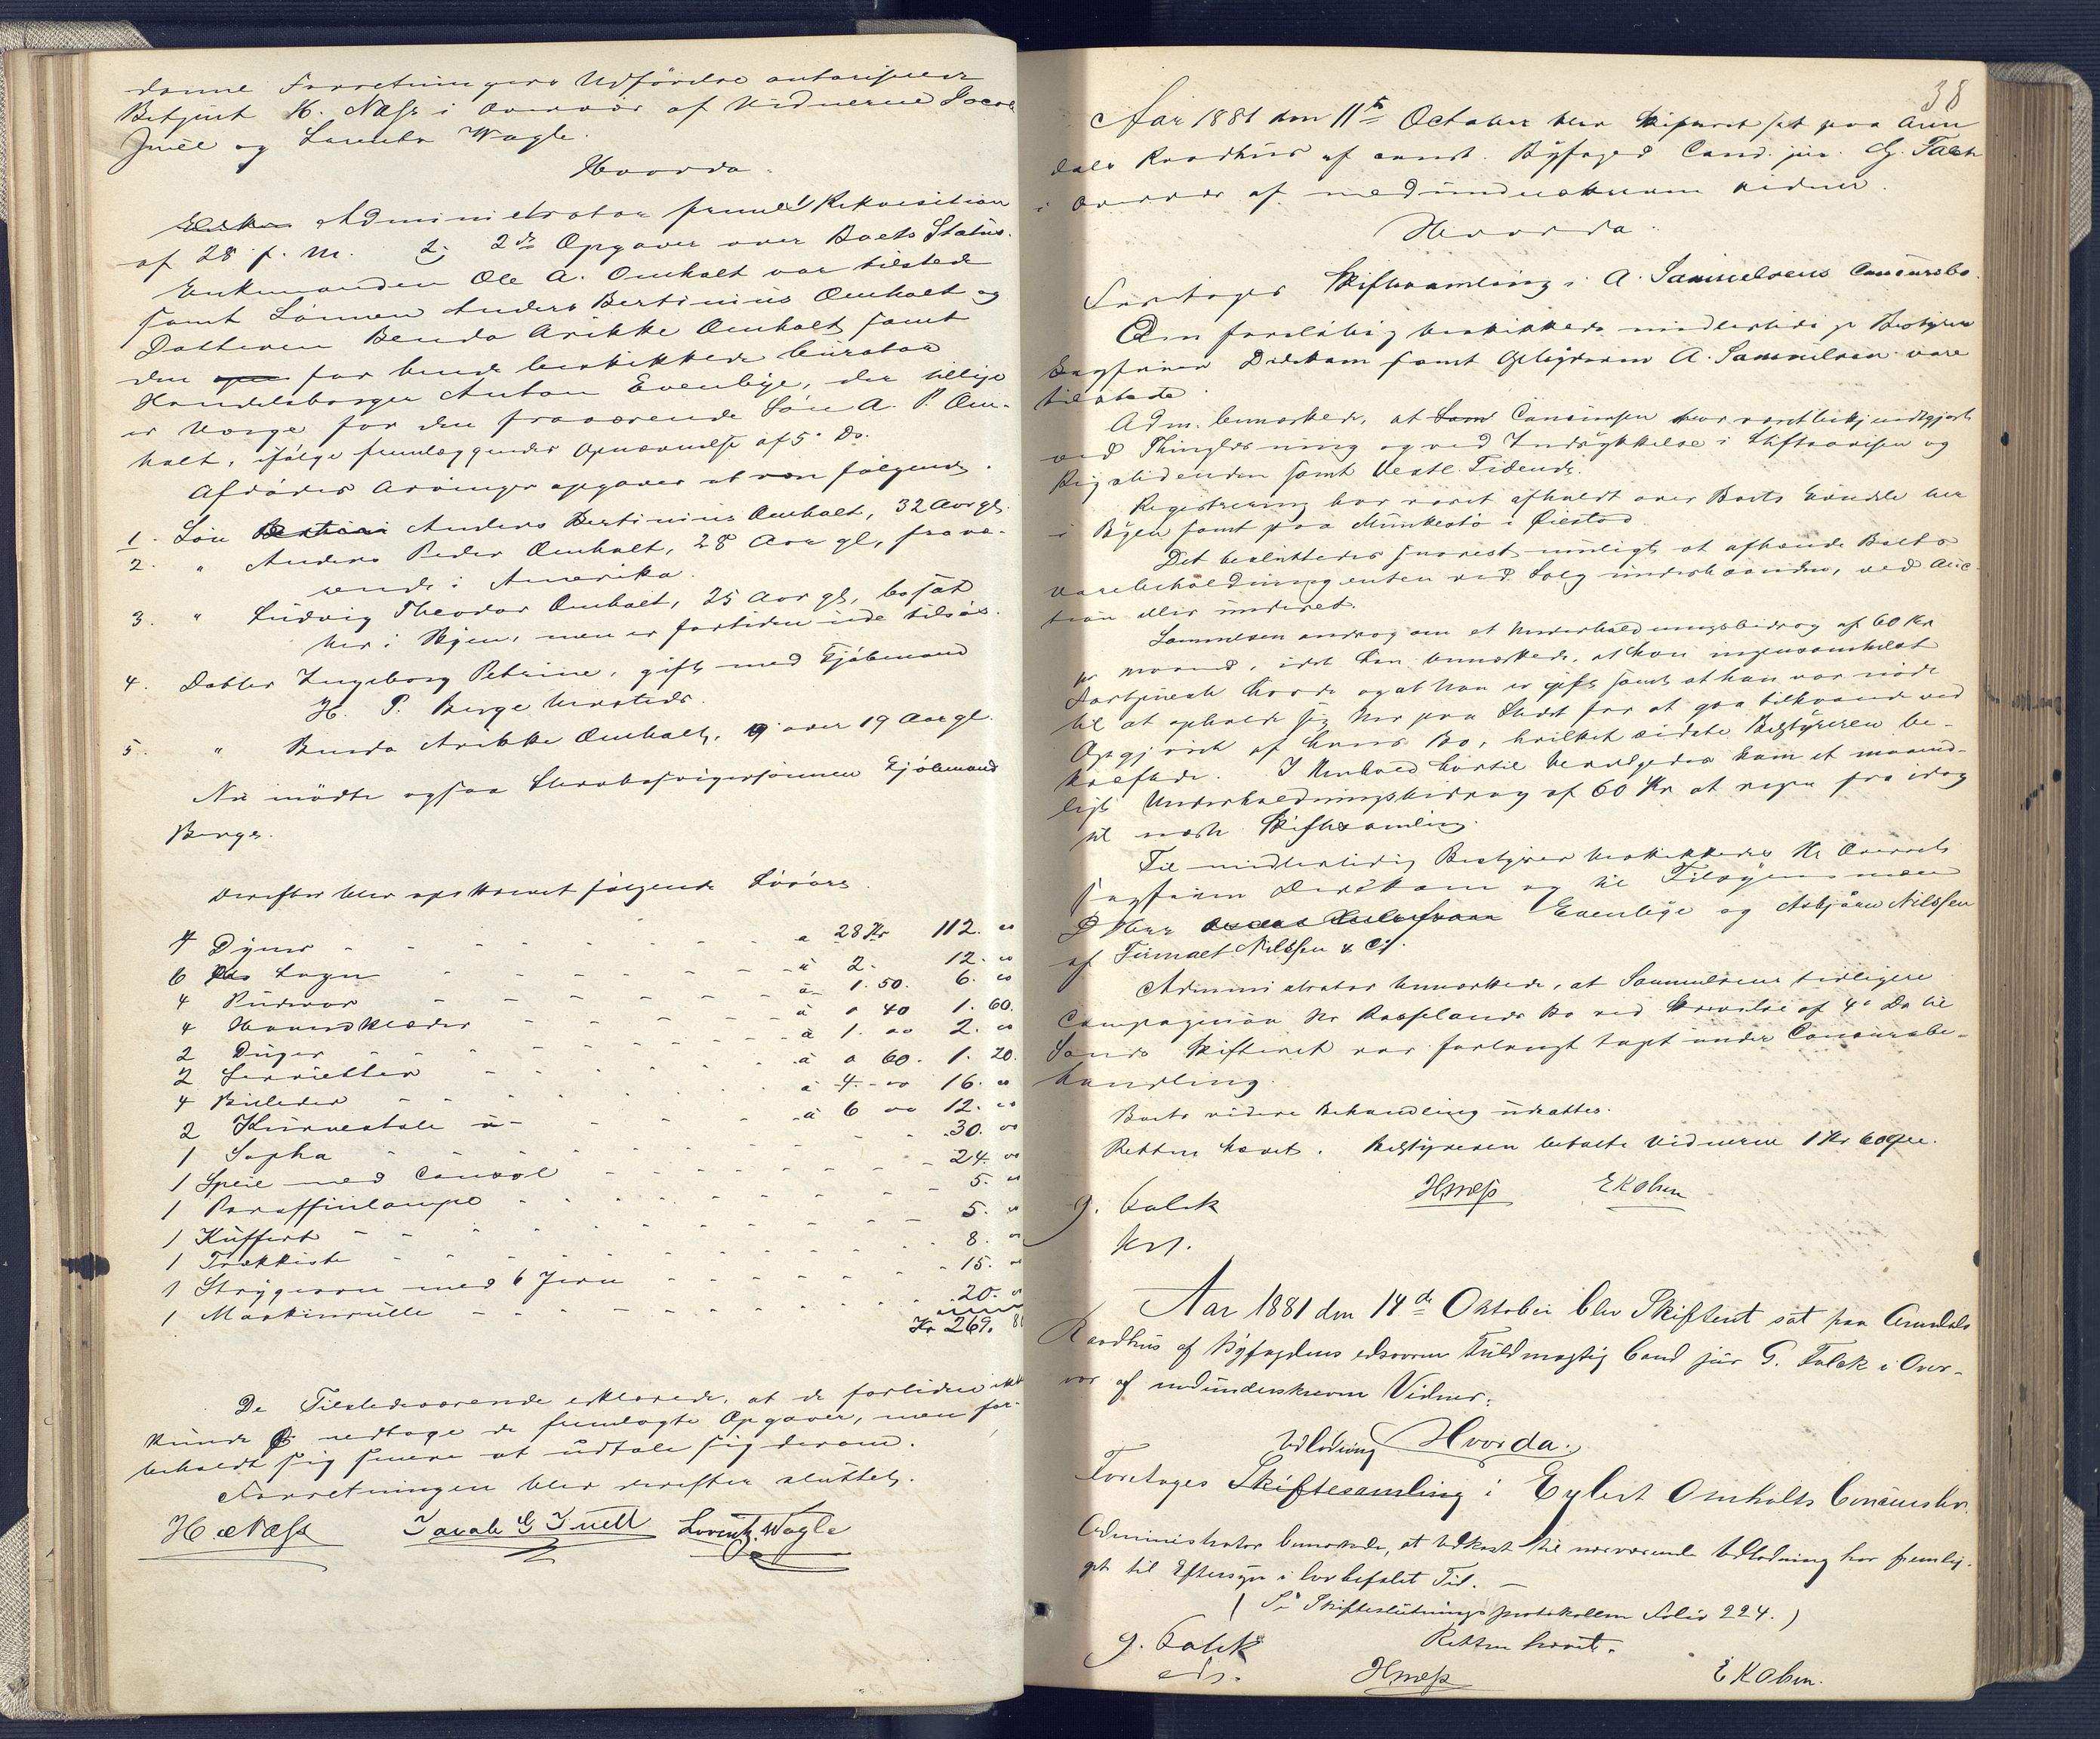 denne Forretnings Udførelse autoriserede
Betjent H. Næss i Overvær af Vidnerne Jacob
Juell og Lorentz Wagle.
Hvorda.
Administrator fremlagt Rekvisition
af 28 f. M. 2; 2de Opgaver over Boets Status.
Enkemanden Ole A. Omholt var tilstede
samt Sønnen Anders Bertinius Omholt og
Datteren Benda Arikke Omholt samt
den for hende beskikkede Curator
Handelsborger Anton Evenbye, der tillige
er Værge for den fraværende Søn A. P. Om-
holt, ifølge fremlæggendes Opnævnelse af 5 Ds.
Afdødes Arvinger opgaves at være følgende.
1. Søn Anders Bertinius Omholt, 32 Aar gl.
2. " Anders Peder Omholt, 28 Aar gl, fravæ-
rende i Amerika.
3. " Ludvig Theodor Omholt, 25 Aar gl, bosat
her i Byen, men er fortiden ude tilsøs.
4. Datter Ingeborg Petrine, gift med Kjøbmand
H. P. Berge hersteds.
5. " Benda Arikke Omholt, over 19 Aar gl.
Nu mødte ogsaa Sterboets Svigersønnen Kjøbmand
Berge.
Derefter blev opskrevet følgende Løsøre
4 Dyner - - - a 28 Kr 112. 00
6 Lagen - - - à 2. 12. 00
4 Pudevar - - - à 1. 50. 6. 00
4 Haandklæder - - - à 0 40 1. 60.
2 Duger - - - à 1. 00 2. 00
2 Servietter - - - à 0 60. 1. 20.
4 Billeder - - - à 4. 00 16. 00
2 Kurvestole - - - à 6 00 12. 00
1 Sopha - - - 30. 00
1 Speil med Consol - - - 24. 00
1 Paraffinlampe - - - 5. 00
1 Kuffert - - - 5. 00
1 Trækkiste - - - 8. 00
1 Strygeovn med 6 Jern - - - 15. 00
1 Maskinrulle - - - 20. 00
Kr 269. 80
De Tilstedeværende erklærede, at de fortiden ikke
kunde vedtage de fremlagte Opgaver, men for-
beholdt sig senere at udtale sig derom.
Forretningen blev derefter sluttet.
H. Næss Jacob G Juell Lorentz Wagle
38
Aar 1881 den 11te October blev Skifteret sat paa Aren
dals Raadhus af const. Byfoged Cand. jur. G. Falck
i Overvær af medunderskrevne Vidner.
Hvorda.
Foretoges Skiftesamling i A. Samuelsens Concursbo.
Den foreløbig beskikkede midlertidige Bestyrer
Sagfører Dedekam samt Opbyderen A. Samuelsen vare
tilstede.
Adm. bemærkede, at Concursen har været bekjendtgjort
ved Thinglæsning og ved Indrykkelse i Stiftsavisen og
Rigstidenden samt Vestl. Tidende.
Registrering har været afholdt over Boets Eiendele her
i Byen samt paa Munkestø i Øiestad.
Det besluttedes snarest muligt at afhænde Boets
Varebeholdning enten ved Salg underhaanden, ved Auc-
tion eller underet.
Samuelsen androg om et Underholdningsbidrag af 60 Kr
pr Maaned, idet han bemærkede, at han
og at han er gift samt at han var nødt
til at opholde sig her paa Stedet for at gaa tilhaande ved
Opgjøret af hans Bo, hvilket sidste Bestyreren be-
kræftede. I Henhold hertil bevilgedes ham et maaned-
ligt Underholdningsbidrag af 60 Kr at regne fra idag
til næste Skiftesamling.
Til midlertidig Bestyrer beskikkedes Hr Overrets
sagfører Dedekam og til Tilsynsmænd
d'Herr Evenbye og Asbjørn Nilssen
af Firmaet Nilssen & Co.
Administrator bemærkede, at Samuelsens tidligere
Compagnon Hr Rosselands Bo ved Skrivelse af 4de Ds til
Sands Skifteret var forlangt tagt under Concursbe-
handling.
Boets videre Behandling udsattes.
Retten hævet. Bestyreren betalte Vidnerne 1 Kr 60 Øre.
G. Falck HNæss EKOlsen
kst.
Aar 1881 den 14de Oktober blev Skifteret sat paa Arendals
Raadhus af Byfogdens edsvorne Fuldmægtig Cand jur G. Falck i Over-
vær af medunderskrevne Vidner.
Hvorda.
Udlodning
Foretoges Skiftesamling i Eylert Omholts Concursbo.
Administrator bemærkede, at Udkast til nærværende Udlodning har fremlig-
get til Eftersyn i lovbefalet Tid. —
( Se Skifteslutningsprotokollen Folio 224. )
Retten hævet.
G. Falck
eds. HNæss EKOlsen.